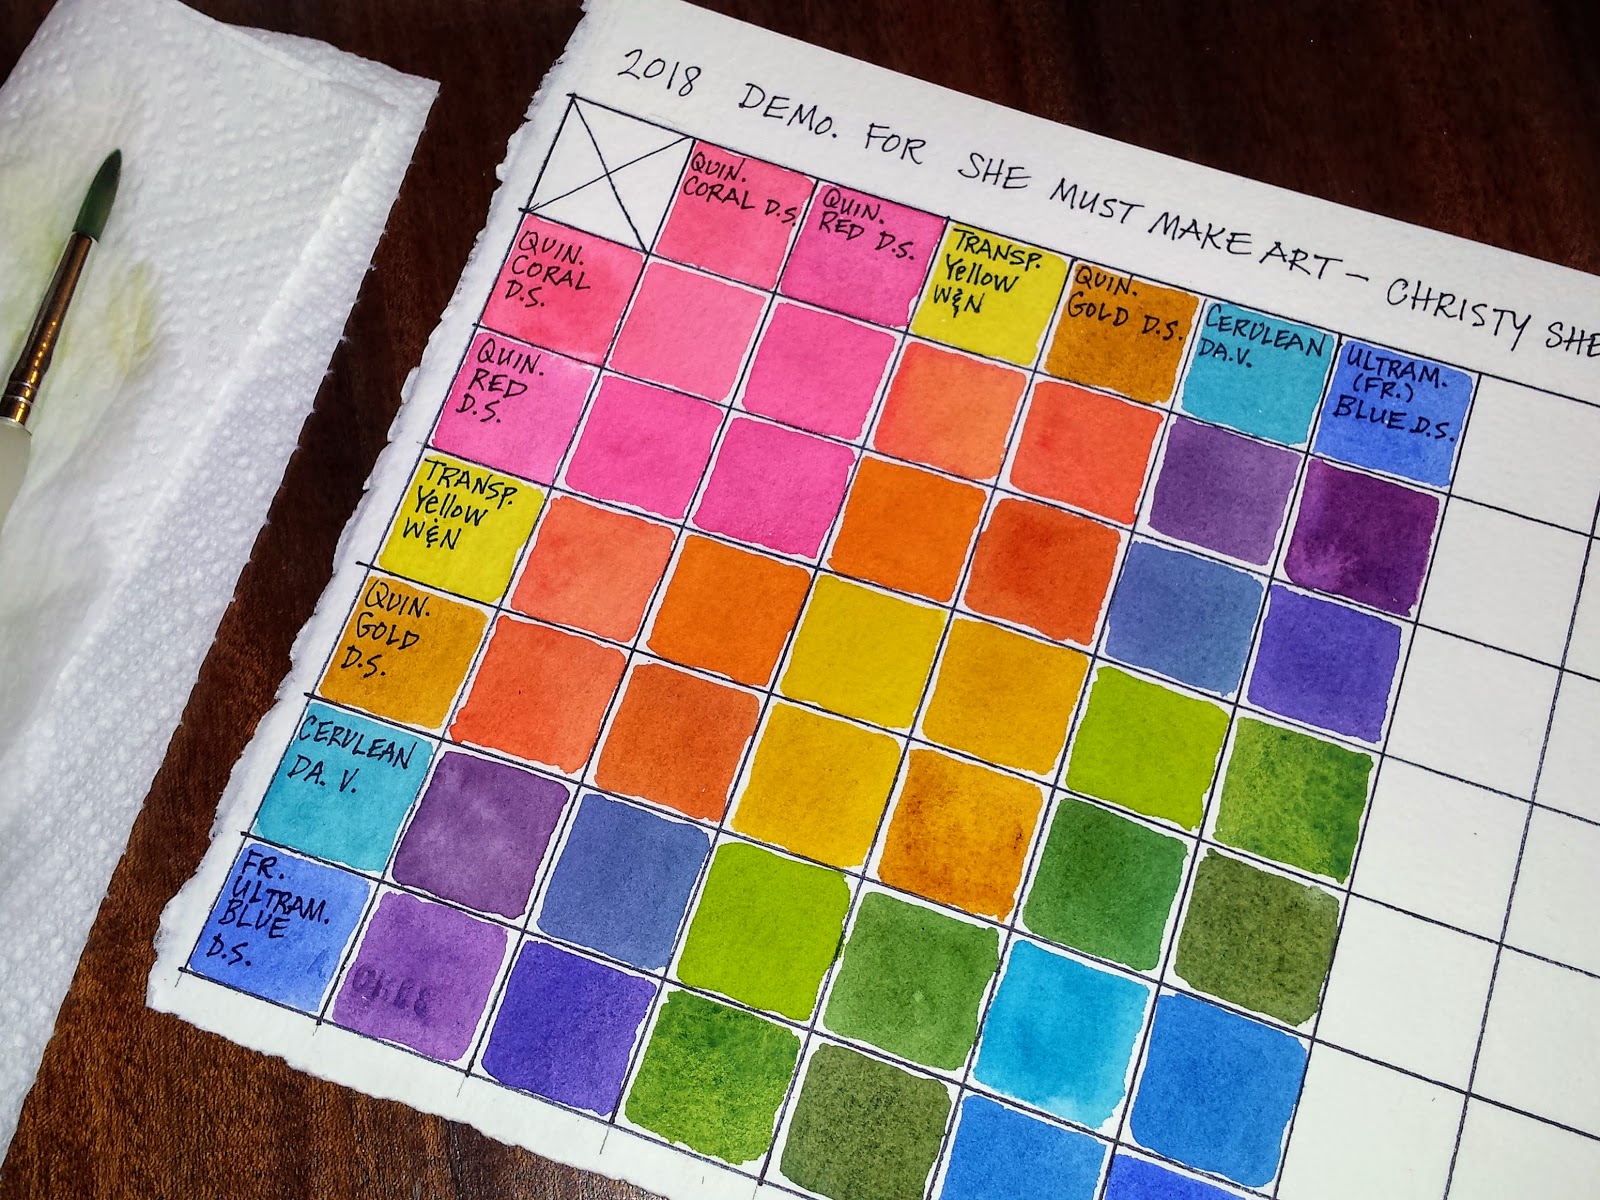 2018 DEMO. FOR SHE MUST MAKE ART – CHRISTY SHE
QUIN.
CORAL D.S.
QUIN.
RED D.S.
TRANSP.
Yellow
W&N
QUIN.
GOLD D.S.
CERULEAN
DA.V.
ULTRAM.
(FR.)
BLUE D.S.
QUIN.
CORAL
D.S.
QUIN.
RED
D.S.
TRANSP.
Yellow
W&N
QUIN.
GOLD
D.S.
CERULEAN
DA. V.
FR.
ULTRAM.
BLUE
D.S.